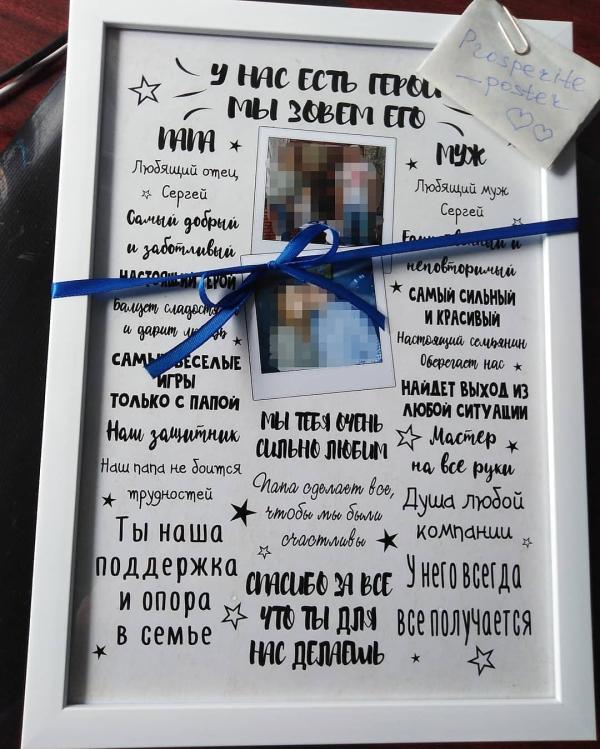 Prosperite
-poster
У НАС ЕСТЬ ГЕРОЙ
МЫ ЗОВЕМ ЕГО
ПАПА
Любящий отец
Сергей
Самый добрый
и заботливый
НАСТОЯЩИЙ ГЕРОЙ
Балует
и дарит
САМЫЕ ВЕСЕЛЫЕ
ИГРЫ
ТОЛЬКО С ПАПОЙ
Наш защитник
Наш папа не боится
трудностей
Ты наша
поддержка
и опора
в семье
МЫ ТЕБЯ ОЧЕНЬ
СИЛЬНО ЛЮБИМ
Папа сделает все,
чтобы мы были
счастливы
СПАСИБО ЗА ВСЕ
ЧТО ТЫ ДЛЯ
НАС ДЕЛАЕШЬ
МУЖ
Любящий муж
Сергей
и
неповторимый
САМЫЙ СИЛЬНЫЙ
И КРАСИВЫЙ
Настоящий семьянин
Оберегает нас
НАЙДЕТ ВЫХОД ИЗ
ЛЮБОЙ СИТУАЦИИ
Мастер
на все руки
Душа любой
компании
У него всегда
все получается